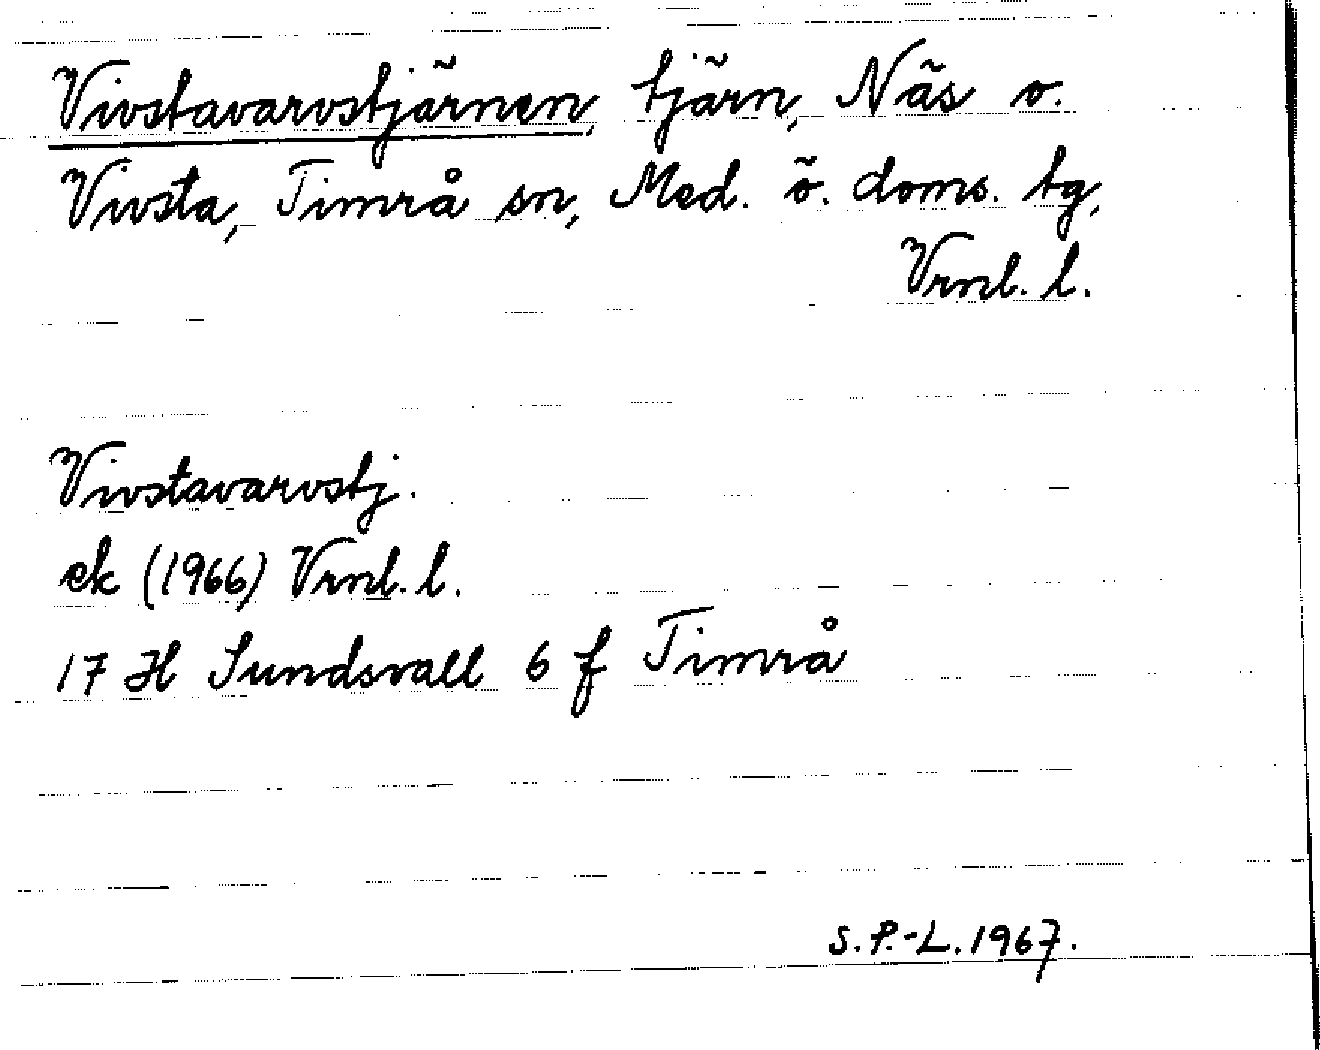 Vivstavarvstjärnen, tjärn, Näs o.
Vivsta, Timrå sn, Med. ö. doms. tg,
Vrnl. l.
Vivstavarvstj.
ek (1966) Vrnl. l.
17 H Sundsvall 6 f Timrå
S. P.-L. 1967.